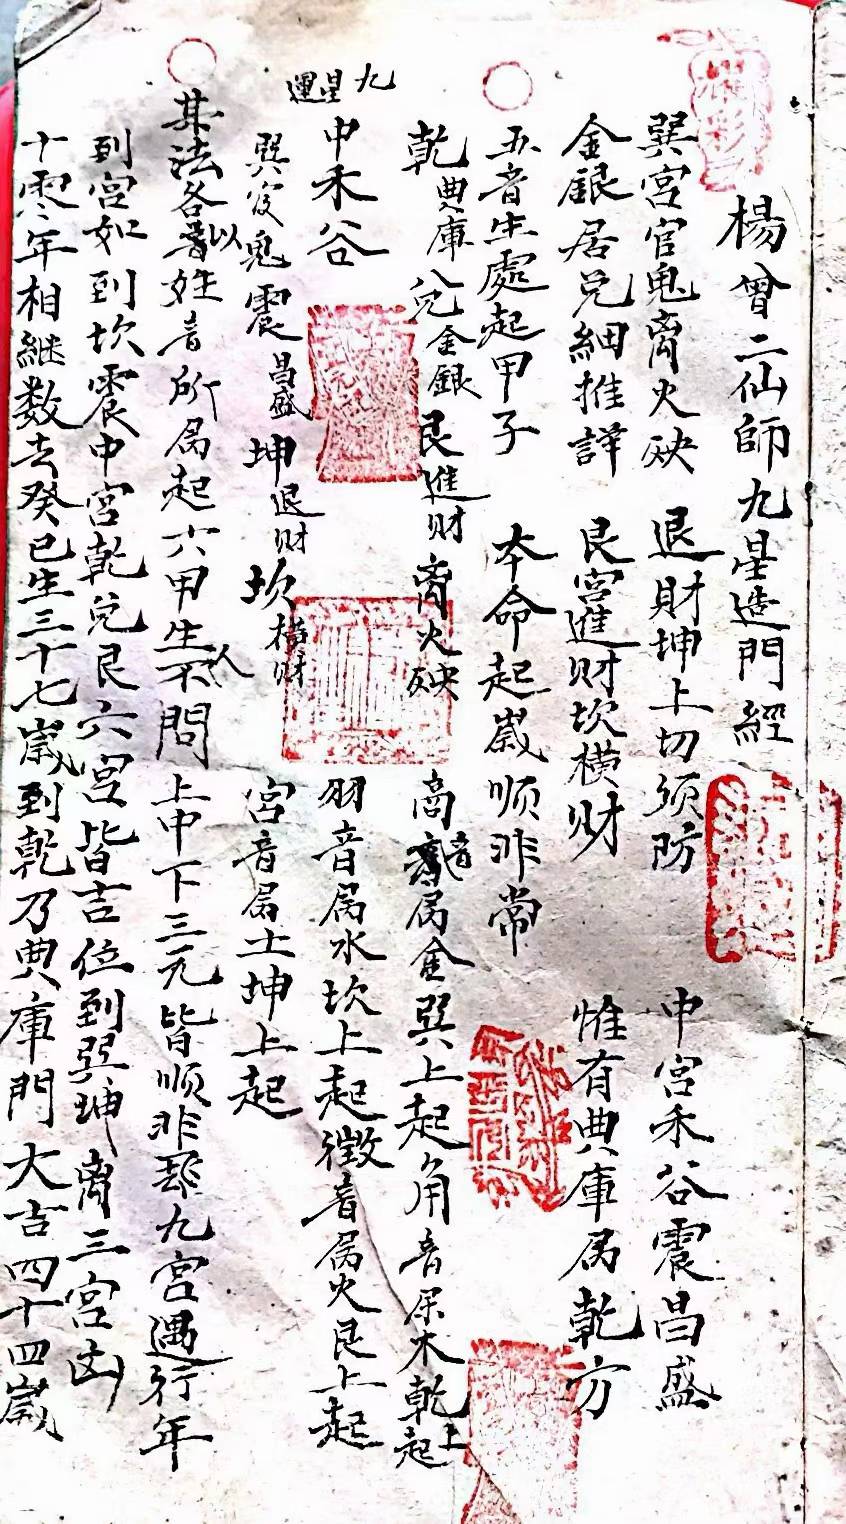 楊曾二仙師九星造門經
巽宮官鬼离火殃 退財坤上切須防 中宮禾谷震昌盛
金銀居兑細推詳 艮宮進財坎横財 惟有典庫属乾方
五音生處起甲子 本命起歲順非常
乾典庫 兑金銀 艮進財 离火殃 商音属金巽上起角音属木乾上起
九星運
中禾谷 羽音属水坎上起徵音属火艮上起
巽官鬼 震昌盛 坤退財 坎横財 宮音属土坤上起
其法各以姓音所属起六甲生人不問上中下三元皆順非九宮遇行年
到宮如到坎震中宮乾兑艮六宮皆吉位到巽坤离三宮凶
十零年相継数去癸巳生三十七歲到乾乃典庫門大吉四十四歲